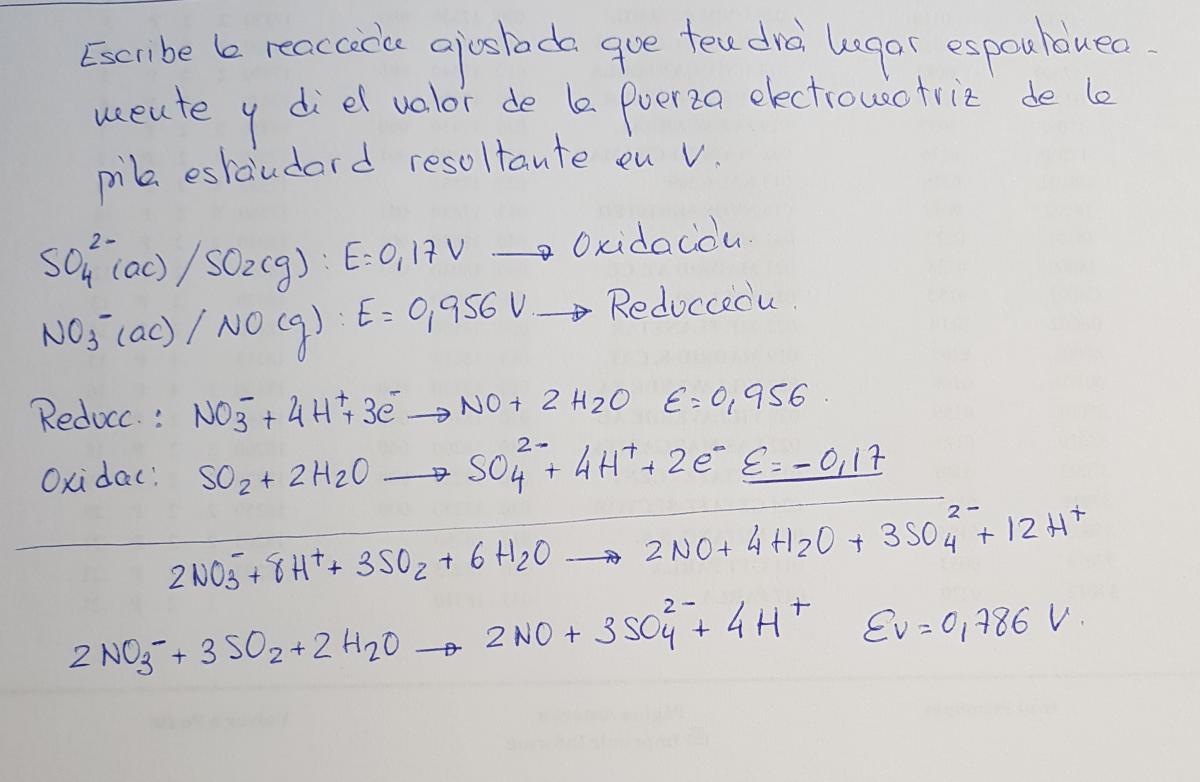 Escribe la reacción ajustada que tendrá lugar espontánea-
mente y di el valor de la fuerza electromotriz de la
pila estándard resultante en V.
SO₄²⁻(ac) / SO₂(g) : E=0,17 V → Oxidación.
NO₃⁻(ac) / NO(g) : E= 0,956 V. → Reducción.
Reducc. : NO₃⁻ + 4H⁺ + 3e⁻ → NO + 2 H₂O E=0,956.
Oxidac: SO₂ + 2H₂O → SO₄²⁻ + 4H⁺ + 2e⁻ E=-0,17
2NO₃⁻ + 8H⁺ + 3SO₂ + 6 H₂O → 2NO + 4H₂O + 3SO₄²⁻ + 12 H⁺
2NO₃⁻ + 3SO₂ + 2H₂O → 2NO + 3SO₄²⁻ + 4H⁺ Ev = 0,786 V.